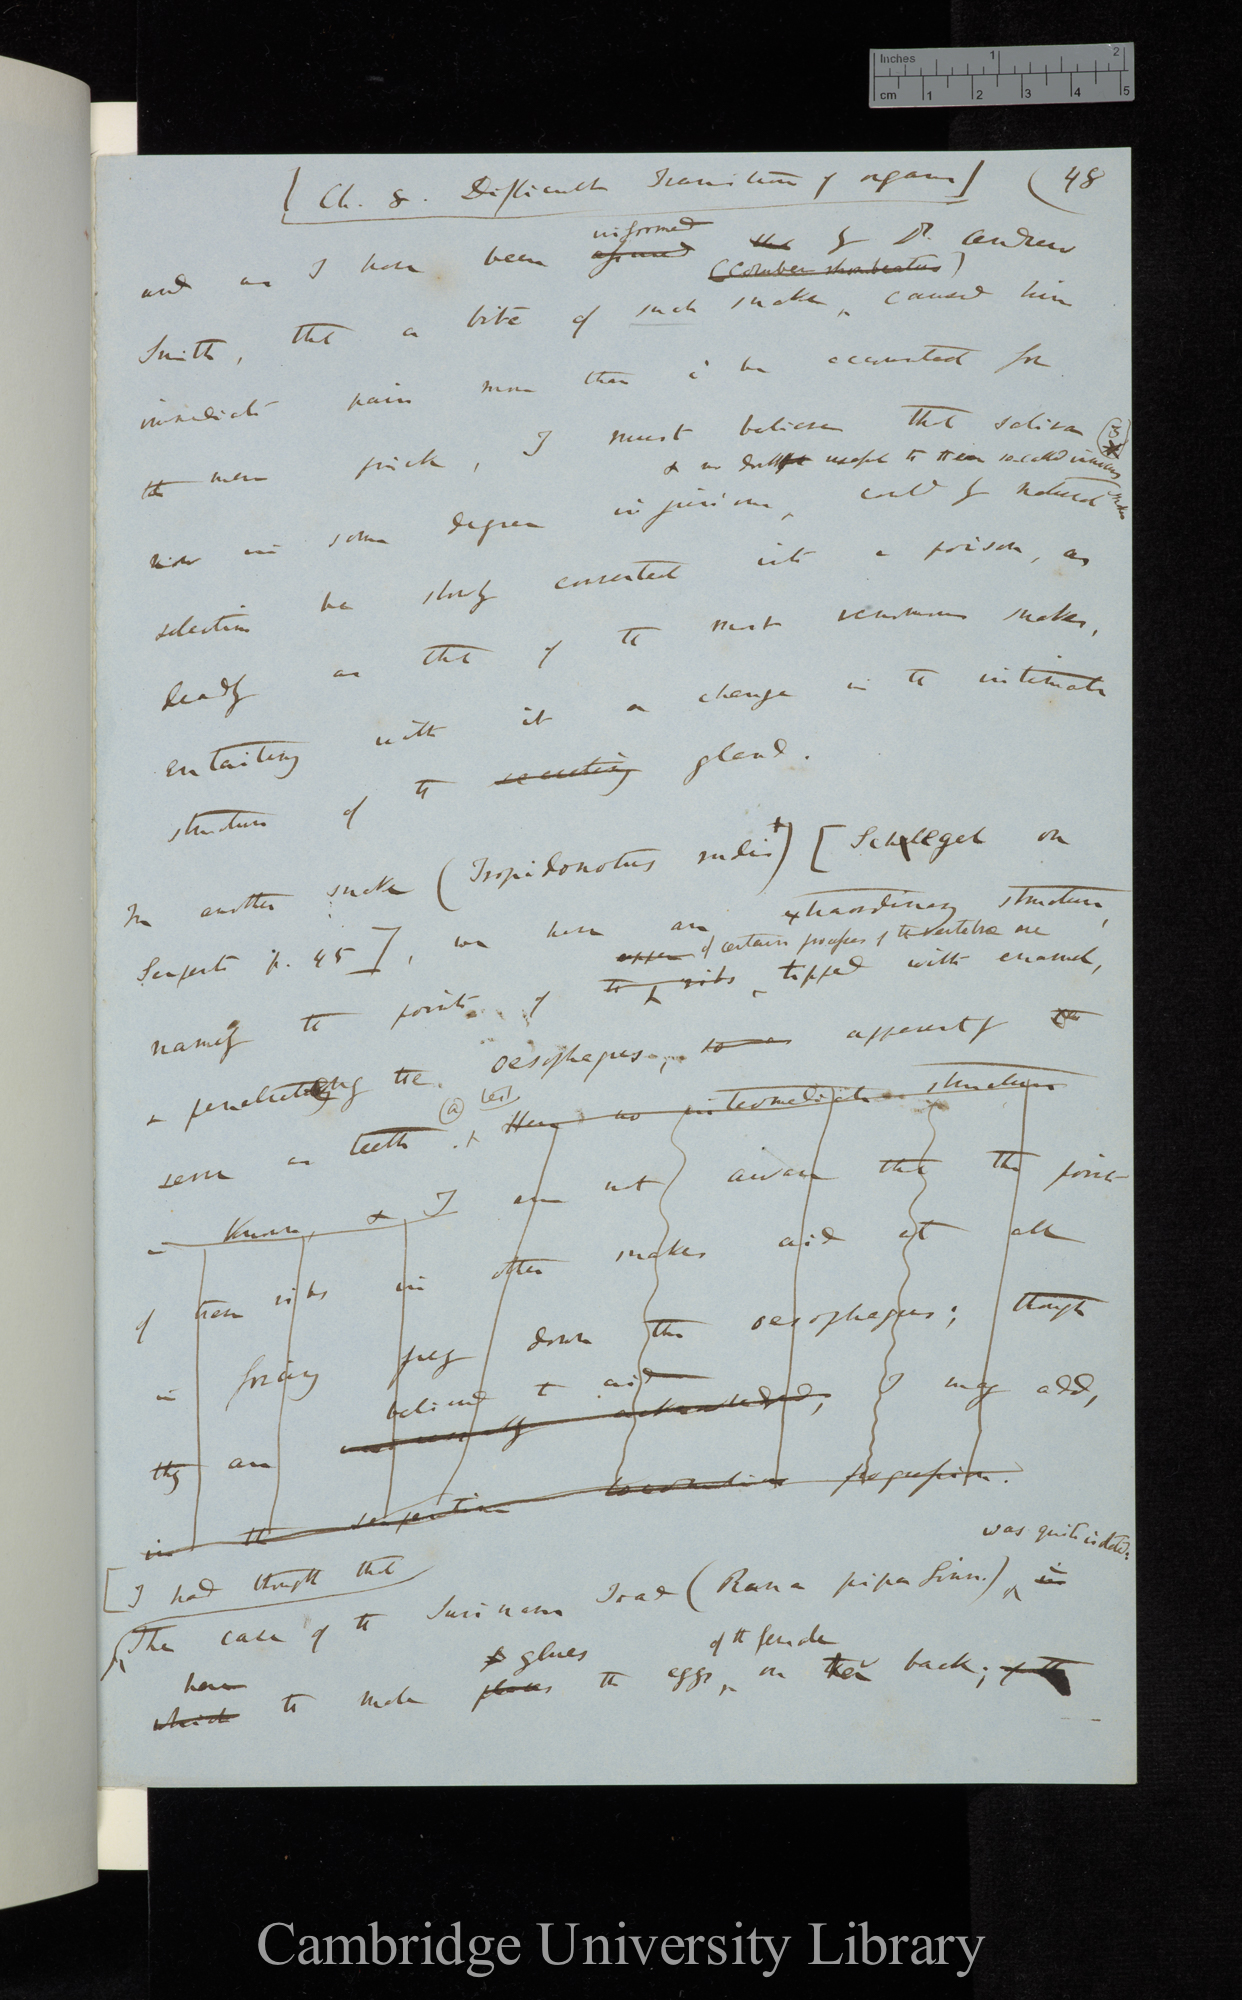 Inches 1 2
cm 1 2 3 4 5
[Ch. 8. Difficult Transition of organs] (48
informed
and as I have been assured that by Dr. Andrew
(Coluber
Smith, that a bite of such snake, caused him
immediate pain more than is be accounted for
the mere prick, I must believe that saliva (3)
& no doubt useful to them
now in some degree injurious, could by natural
selection be slowly converted into a poison, as
deadly as that of the most venomous snakes,
entailing with it a change in the intimate
structure of the secreting gland.
In another snake (Tropidonotus rudis) [Schlegel on
Serpents p. 45], we have an extraordinary structure,
upper of certain processes of the vertebrae are
namely the points of the ribs tipped with enamel,
& penetrating the oesophagus, apparently
(a) text
serve as teeth. Here no intermediate structure
is known, & I am not aware that the points
of these ribs in other snakes aid at all
in forcing prey down the oesophagus; though
believed to aid
they are universally acknowledged, I may add,
in the serpentine locomotion progression.
[I had thought that
was quite isolated:
The case of the Surinam Toad (Rana pipa Linn.), in
glues of the female
here
which the male places the eggs, on their back; & the
Cambridge University Library